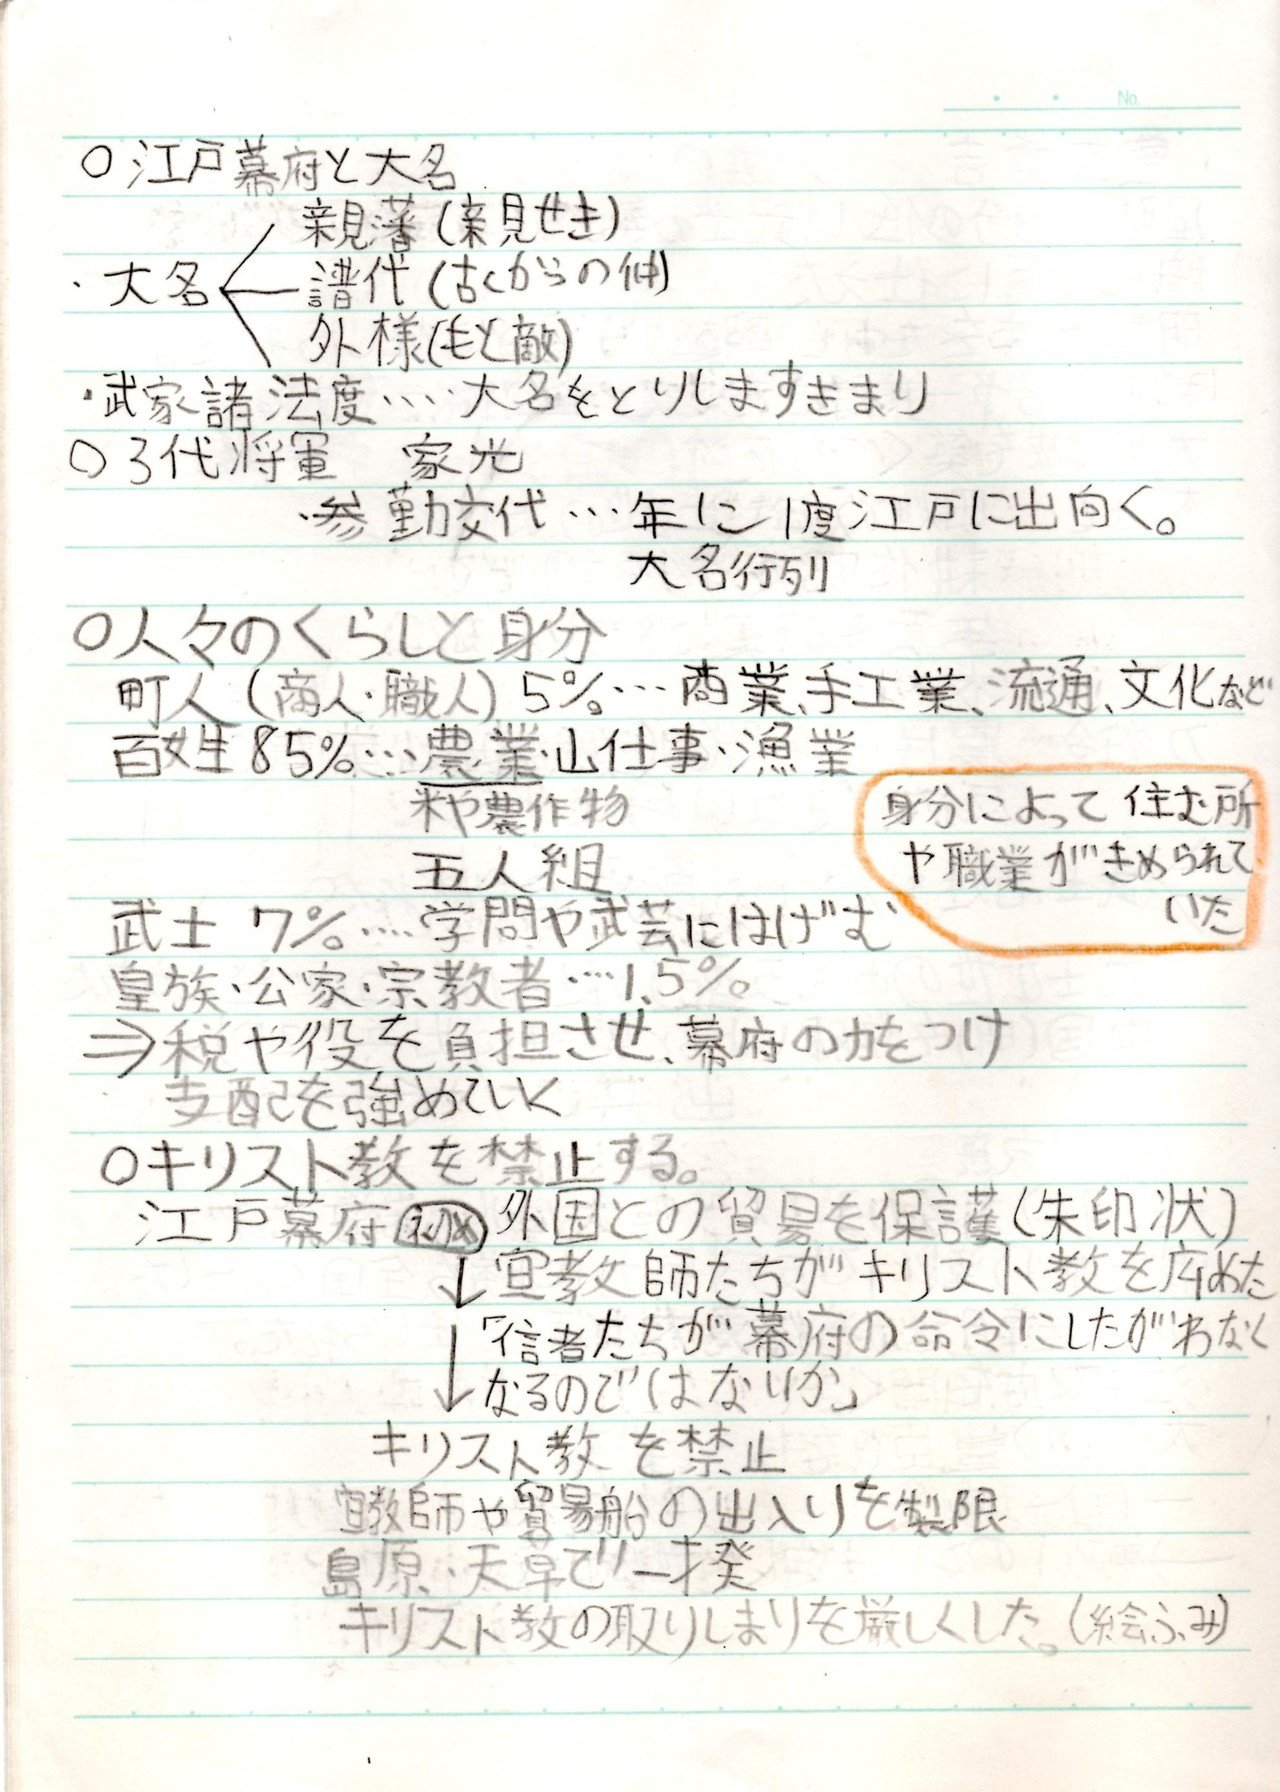 No.
○江戸幕府と大名
親藩(親せき)
・大名 譜代(古くからの仲)
外様(もと敵)
・武家諸法度‥‥大名をとりしますきまり
○3代将軍 家光
・参勤交代…年に1度江戸に出向く。
大名行列
○人々のくらしと身分
町人(商人・職人)5%…商業、手工業、流通、文化など
百姓85%…農業・山仕事・漁業
米や農作物
五人組
身分によって住む所
や職業がきめられて
いた
武士 7%‥‥学問や武芸にはげむ
皇族・公家・宗教者…1.5%
⇒税や役を負担させ、幕府の力をつけ
支配を強めていく
○キリスト教を禁止する。
江戸幕府 初め 外国との貿易を保護(朱印状)
↓ 宣教師たちがキリスト教を広めた
↓「信者たちが幕府の命令にしたがわなく
なるのではないか」
キリスト教を禁止
宣教師や貿易船の出入りを製限
島原・天草で一揆
キリスト教の取りしまりを厳しくした。(絵ふみ)